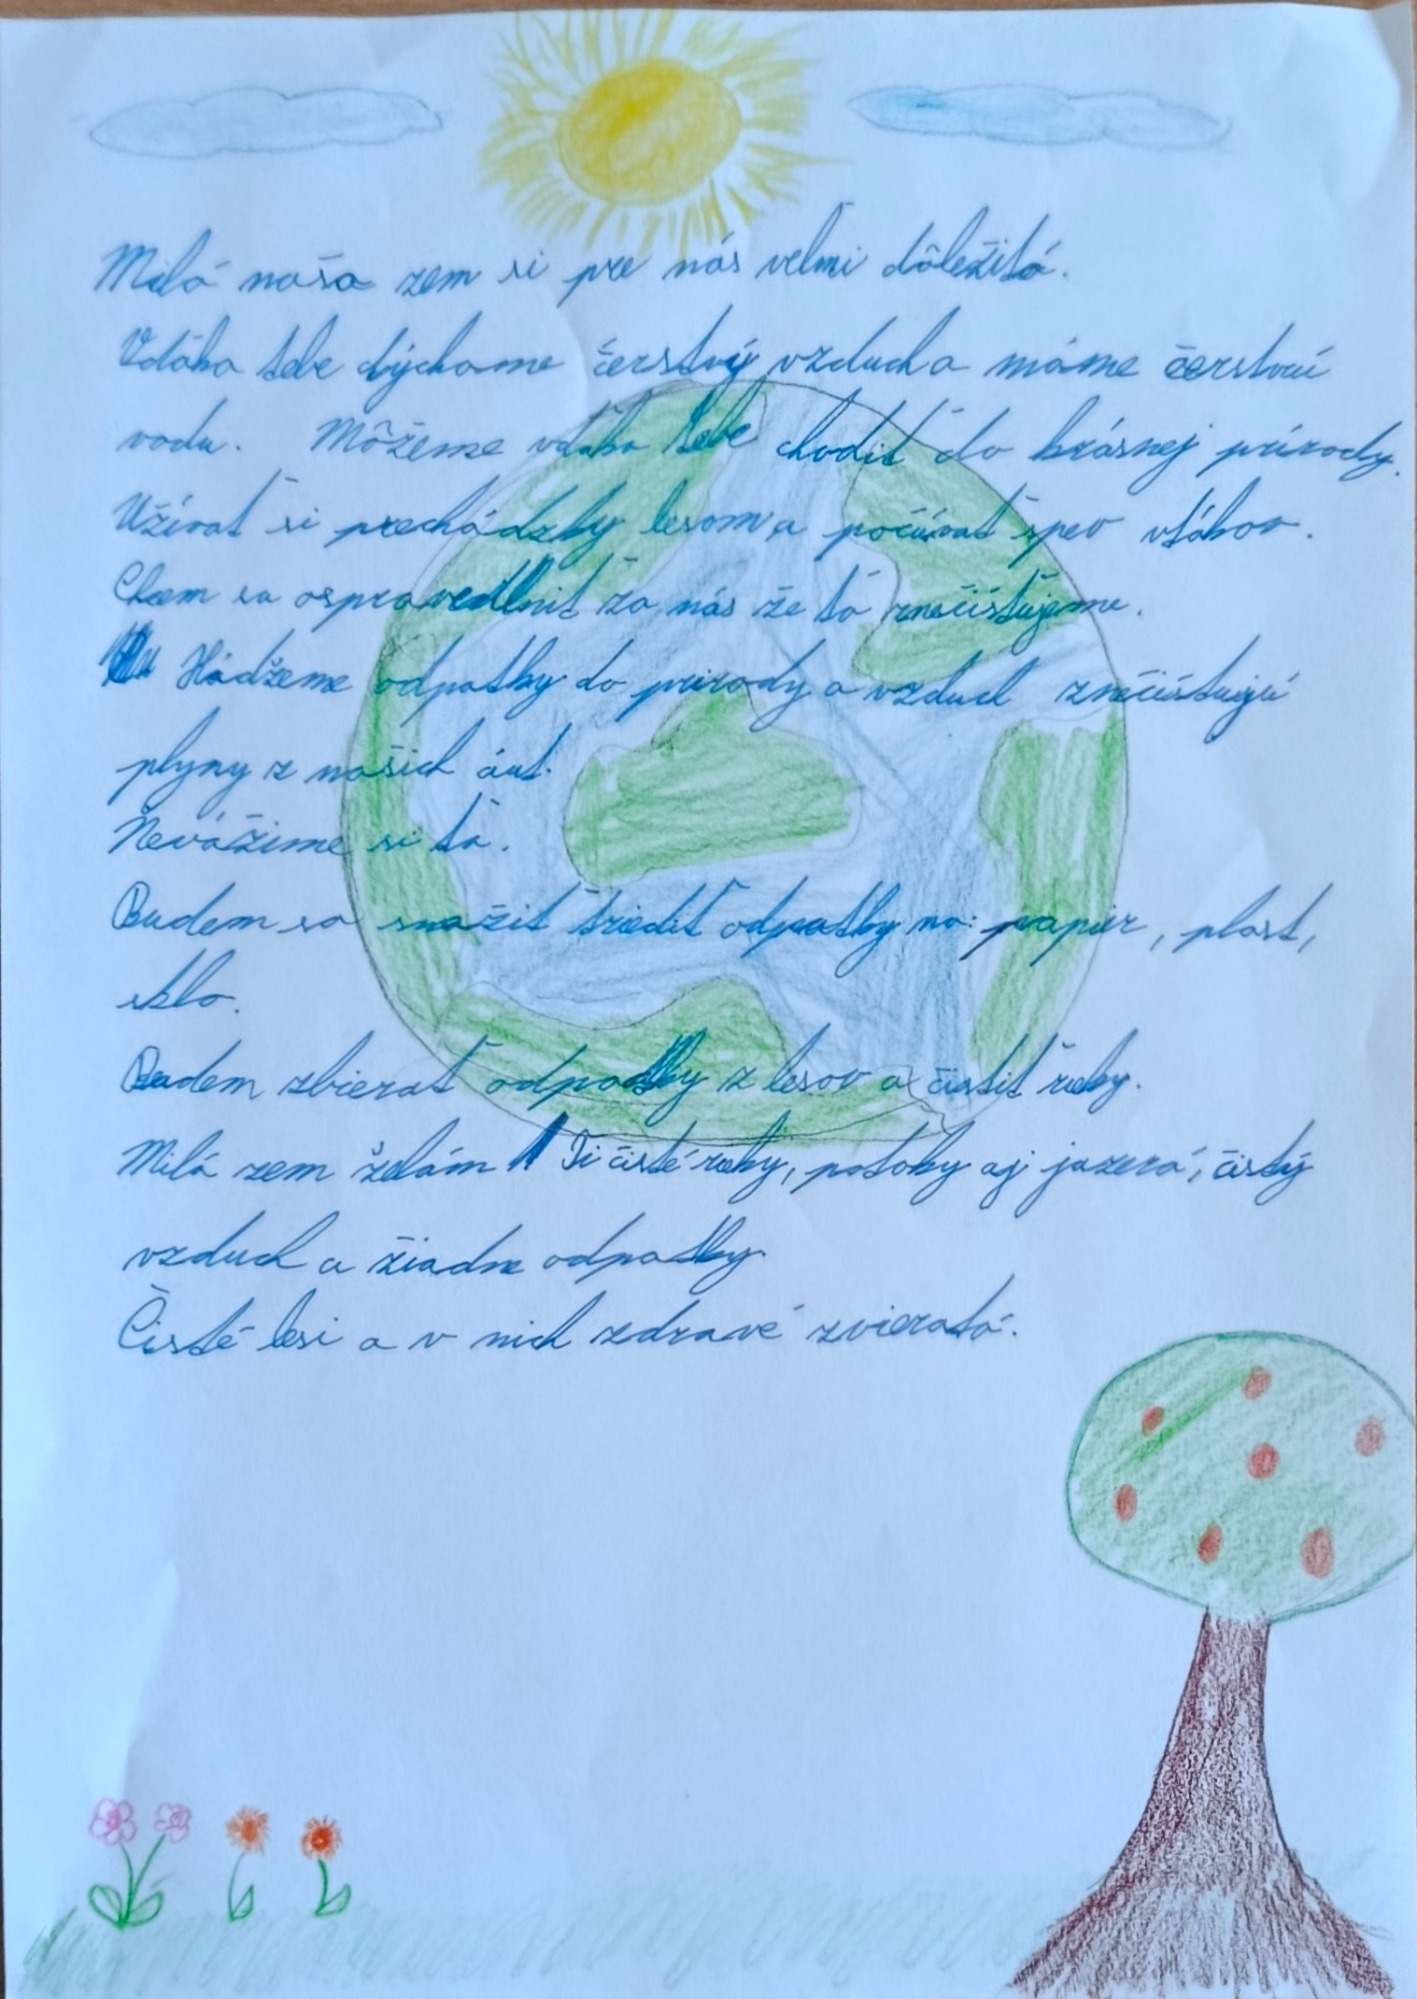 Milá naša zem si pre nás veľmi dôležitá.
Vďaka tebe dýchame čerstvý vzduch a máme čerstvú
vodu. Môžeme vďaka tebe chodiť do krásnej prírody.
Užívať si prechádzky lesom a počúvať spev vtákov.
Chcem sa ospravedlniť za nás že ťa znečisťujeme.
Hádžeme odpatky do prírody a vzduch znečisťujú
plyny z našich áut.
Nevážime si ťa.
Budem sa snažiť triediť odpatky na: papier, plast,
sklo.
Budem zbierať odpatky z lesov a čistiť rieky.
Milá zem želám Ti čisté rieky, potoky aj jazerá, čistý
vzduch a žiadne odpatky.
Čisté lesi a v nich zdravé zvieratá.